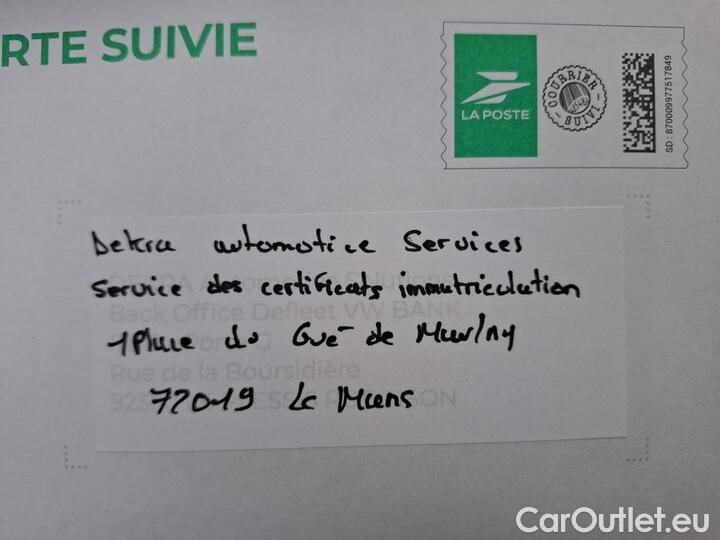 RTE SUIVIE
LA POSTE
COURRIER SUIVI
SD : 87000997751​7849
Dekra automotice Services
Service des certificats immatriculation
1 Place du Gué de Maulny
72019 Le Mans
DEKRA Automotive Solutions
Back Office Defleet VW BANK
Rue de la Boursidière
CarOutlet.eu